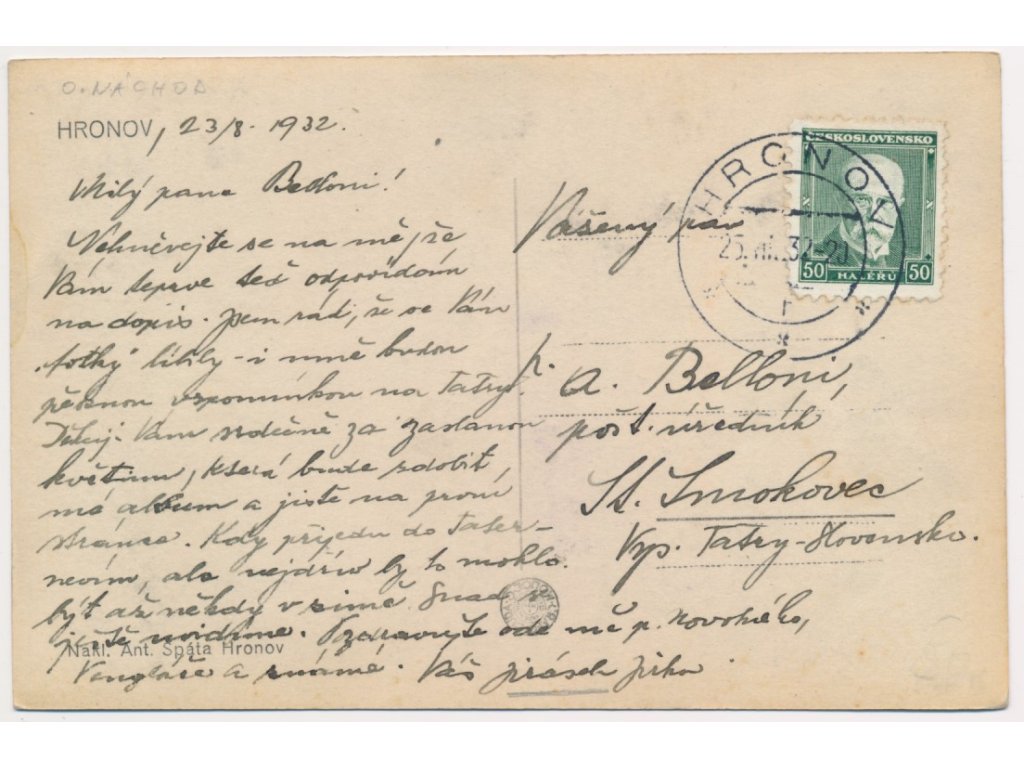 O. NÁCHOD
HRONOV, 23/8. 1932.
Milý pane Belloni!
Nehněvejte se na mě, že
Vám teprve teď odpovídám
na dopis. Jsem rád, že se Vám
fotky líbily - i mně budou
pěknou vzpomínkou na Tatry.
Děkuji Vám srdečně za zaslanou
květinu, která bude zdobit
mé album a jistě na první
stránce. Kdy přijedu do Tater -
nevím, ale nejdřív by to mohlo
být až někdy v zimě. Snad se
ještě uvidíme. Pozdravujte ode mě p. Novotného,
a známé. Váš Jirásek Jirka
Nakl. Ant. Špáta Hronov
ČESKOSLOVENSKO
50 HALÉRŮ 50
HRONOV
25.VIII.32-20
Vážený pán
p. A. Belloni,
pošt. úředník
St. Smokovec
Vys. Tatry - Slovensko.